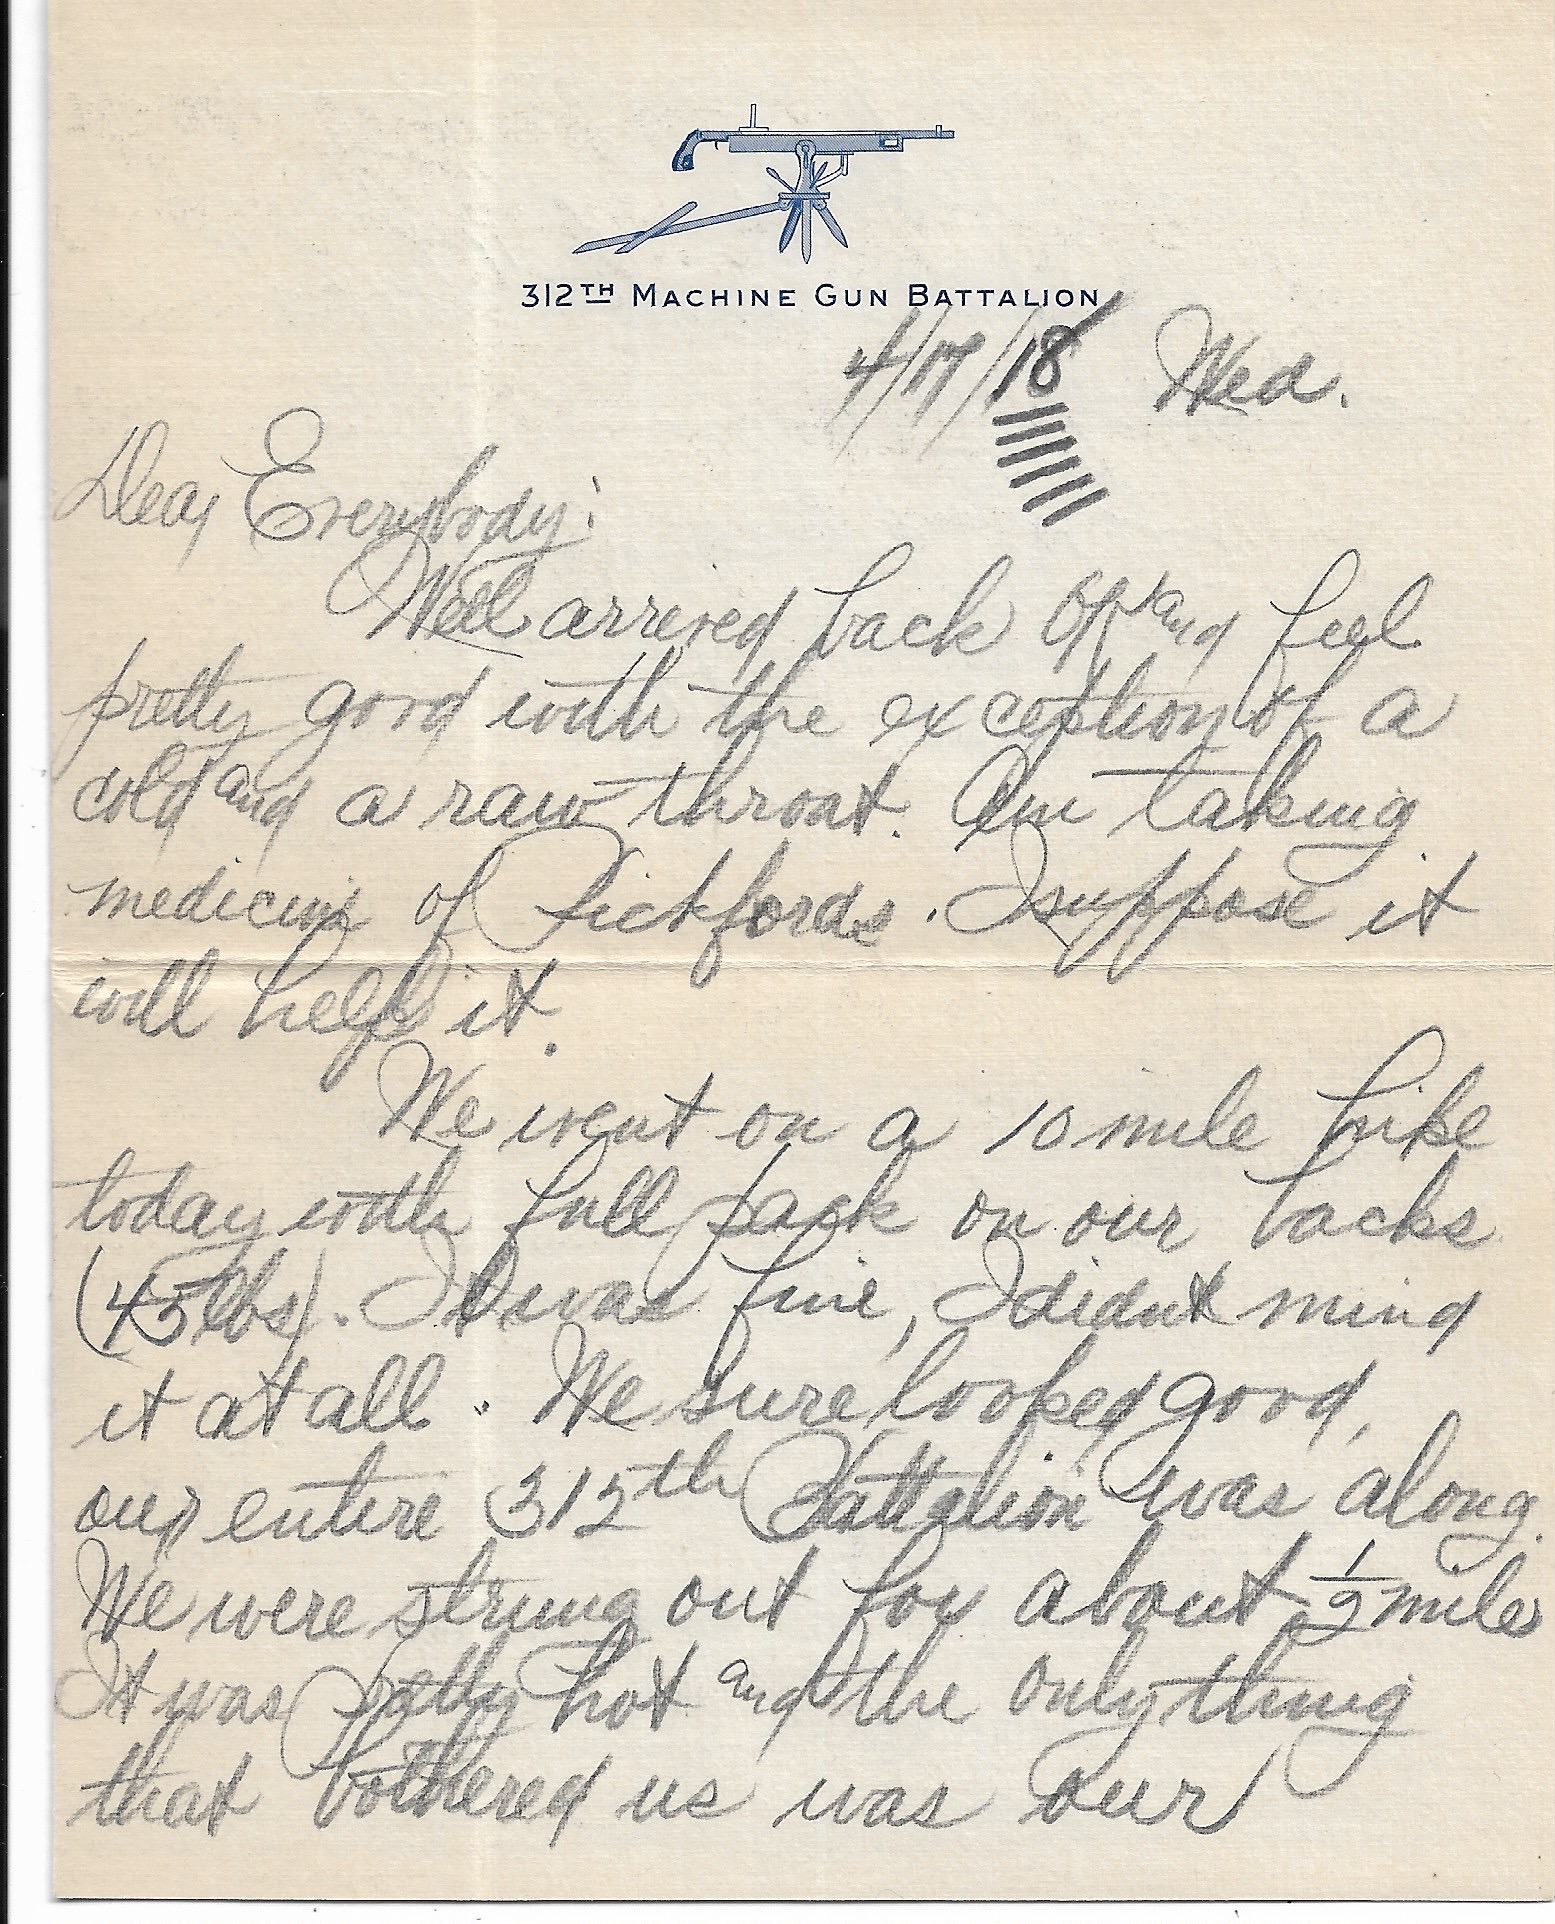 312TH MACHINE GUN BATTALION
4/17/18 Wed.
Dear Everybody:
Well arrived back OK and feel
pretty good with the exception of a
cold and a raw throat. Am taking
medicine of Pickfords. I suppose it
will help it.
We went on a 10 mile hike
today with full pack on our backs
(45 lbs). It was fine, I didnt mind
it at all. We sure looked good,
our entire 312th Battalion was along.
We were strung out for about 1/2 miles
It was pretty hot and the only thing
that bothered us was our